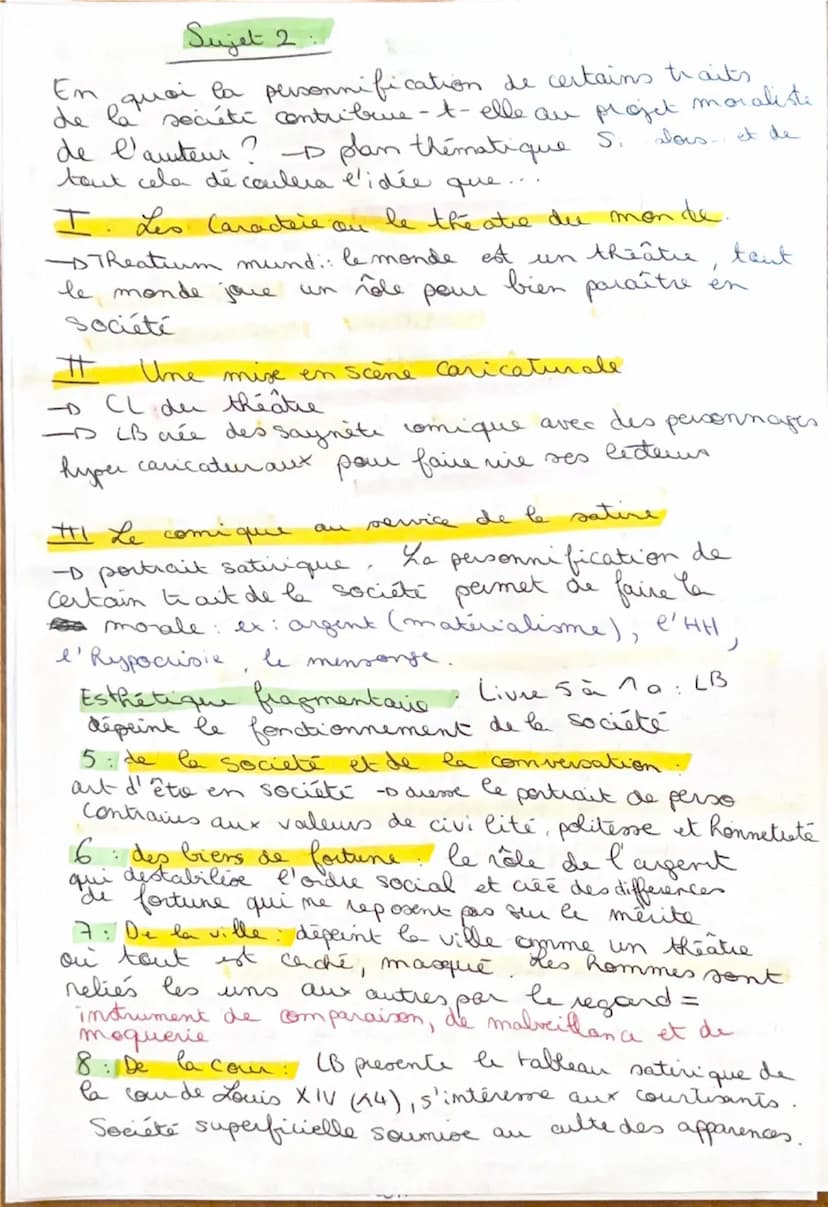 Sujet 2 :
En quoi la personnification de certains traits
de la société contribue-t-elle au projet moraliste
de l'auteur ? → plan thématique Si alors... et de
tout cela découlera l'idée que...
I. Les Caractère ou le théatre du monde.
→ Theatrum mundi : le monde est un théâtre, tout
le monde joue un rôle pour bien paraître en
société
II Une mise en scène caricaturale
→ CL du théâtre
→ LB crée des saynète comique avec des personnages
hyper caricaturaux pour faire rire ses lecteurs
III Le comique au service de la satire
→ portrait satirique. La personnification de
certain trait de la société permet de faire la
morale : ex : argent (matérialisme), l'HH,
l'hypocrisie, le mensonge.
Esthétique fragmentaire. Livre 5 à 10 : LB
dépeint le fonctionnement de la société
5 : de la société et de la conversation :
art d'être en société → dresse le portrait de perso
contraires aux valeurs de civilité, politesse et honnetreté
6 : des biens de fortune : le rôle de l'argent
qui déstabilise l'ordre social et créé des différences
de fortune qui ne reposent pas sur le mérite
7 : De la ville : dépeint la ville comme un théâtre
où tout est caché, masqué. Les hommes sont
reliés les uns aux autres par le regard =
instrument de comparaison, de malveillance et de
moquerie
8 : De la cour : LB présente le tableau satirique de
la cour de Louis XIV (14), s'intéresse aux courtisants.
Société superficielle soumise au culte des apparences.